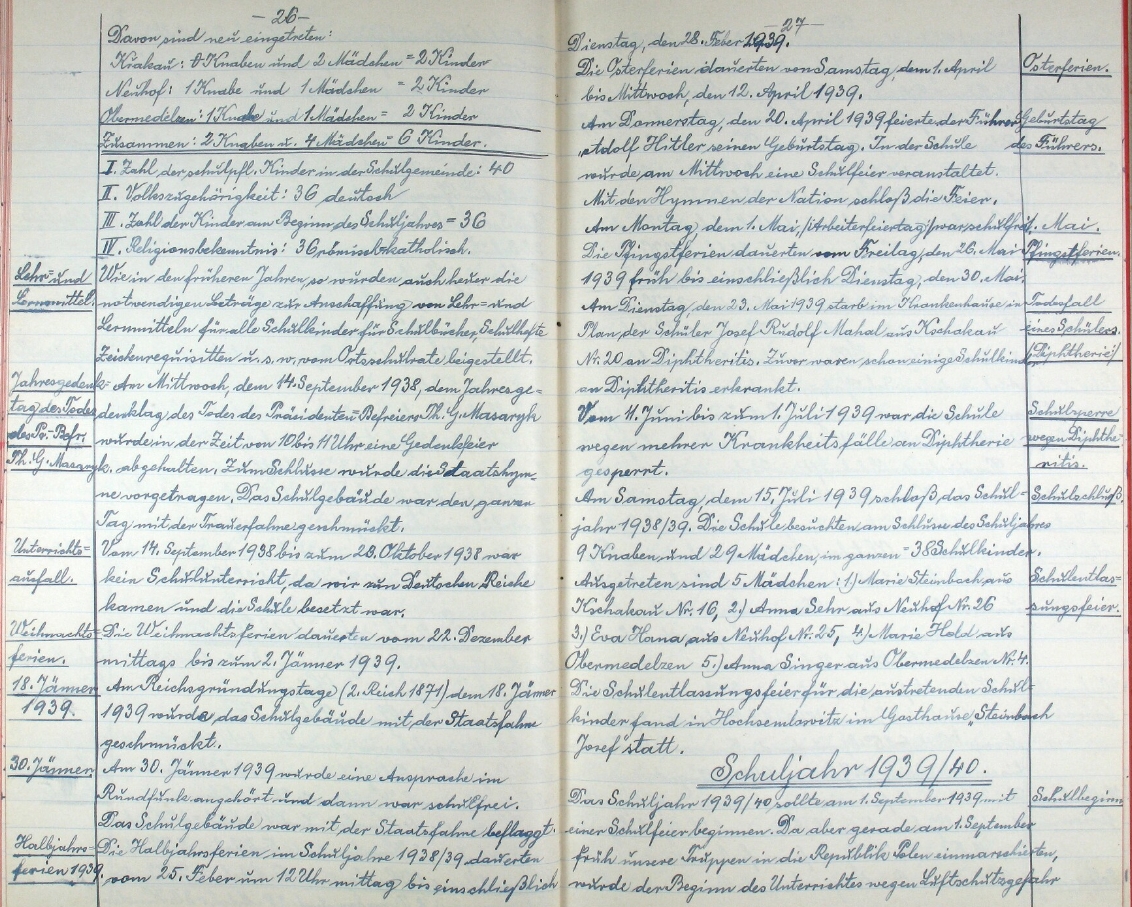 - 26 -
Davon sind neu eingetreten:
Krakau: 0 Knaben und 2 Mädchen = 2 Kinder
Neuhof: 1 Knabe und 1 Mädchen = 2 Kinder
Obermedelzen: 1 Knabe und 1 Mädchen = 2 Kinder
Zusammen: 2 Knaben u. 4 Mädchen 6 Kinder.
I. Zahl der schulpfl. Kinder in der Schulgemeinde: 40
II. Volkszugehörigkeit: 36 deutsch
III. Zahl der Kinder am Beginn des Schuljahres = 36
IV. Religionsbekenntnis: 36 römisch-katholisch.
Lehr- und Wie in den früheren Jahren, so wurden auch heuer die
Lernmittel. notwendigen Beträge zur Anschaffung von Lehr- und
Lernmitteln für alle Schulkinder für Schulbücher, Schulhefte
Zeichenrequisitten u. s. w. vom Ortsschulrate beigestellt.
Jahresgedenk- Am Mittwoch, dem 14. September 1938, dem Jahresge-
tag des Todes denktag des Todes des Präsidenten-Befreiers Th. G. Masaryk
des Pr.-Befr. wurde in der Zeit von 10 bis 11 Uhr eine Gedenkfeier
Th. G. Masaryk. abgehalten. Zum Schlusse wurde die Staatshym-
ne vorgetragen. Das Schulgebäude war den ganzen
Tag mit der Trauerfahne geschmückt.
Unterrichts- Vom 14. September 1938 bis zum 28. Oktober 1938 war
ausfall. kein Schulunterricht, da wir zum Deutschen Reiche
kamen und die Schule besetzt war.
Weihnachts- Die Weihnachtsferien dauerten vom 22. Dezember
ferien. mittags bis zum 2. Jänner 1939.
18. Jänner Am Reichsgründungstage (2. Reich 1871) dem 18. Jänner
1939. 1939 wurde das Schulgebäude mit der Staatsfahne
geschmückt.
30. Jänner Am 30. Jänner 1939 wurde eine Ansprache im
Rundfunk angehört und dann war schulfrei.
Das Schulgebäude war mit der Staatsfahne beflaggt.
Halbjahrs- Die Halbjahrsferien im Schuljahre 1938/39 dauerten
ferien 1939. vom 25. Feber um 12 Uhr mittag bis einschließlich
- 27 -
Dienstag, den 28. Feber 1939.
Die Osterferien dauerten von Samstag, dem 1. April Osterferien.
bis Mittwoch, den 12. April 1939.
Am Donnerstag, den 20. April 1939 feierte der Führer Geburtstag
Adolf Hitler seinen Geburtstag. In der Schule des Führers.
wurde am Mittwoch eine Schulfeier veranstaltet.
Mit den Hymnen der Nation schloß die Feier.
Am Montag, dem 1. Mai, /Arbeiterfeiertag/ war schulfrei. 1. Mai.
Die Pfingstferien dauerten vom Freitag, den 26. Mai Pfingstferien.
1939 früh bis einschließlich Dienstag, den 30. Mai.
Am Dienstag, den 23. Mai 1939 starb im Krankenhause in Todesfall
Plan, der Schüler Josef Rudolf Mahal aus Kschakau eines Schülers.
Nr. 20 an Diphtheritis. Zuvor waren schon einige Schulkinder /Diphtherie/
an Diphtheritis erkrankt.
Vom 11. Juni bis zum 1. Juli 1939 war die Schule Schulsperre
wegen mehrer Krankheitsfälle an Diphtherie wegen Diphthe-
gesperrt. ritis.
Am Samstag, dem 15. Juli 1939 schloß das Schul- Schulschluß.
jahr 1938/39. Die Schule besuchten am Schlusse des Schuljahres
9 Knaben und 29 Mädchen, im ganzen = 38 Schulkinder.
Ausgetreten sind 5 Mädchen: 1.) Marie Steinbach aus Schulentlas-
Kschakau Nr. 16, 2.) Anna Sehr aus Neuhof Nr. 26 sungsfeier.
3.) Eva Hana aus Neuhof Nr. 25, 4.) Marie Held aus
Obermedelzen 5.) Anna Singer aus Obermedelzen Nr. 4.
Die Schulentlassungsfeier für die austretenden Schul-
kinder fand in Hochsemlowitz im Gasthause „Steinbach
Josef“ statt.
Schuljahr 1939/40.
Das Schuljahr 1939/40 sollte am 1. September 1939 mit Schulbeginn
einer Schulfeier beginnen. Da aber gerade am 1. September
früh unsere Truppen in die Republik Polen einmarschierten,
wurde der Beginn des Unterrichtes wegen Luftschutzgefahr